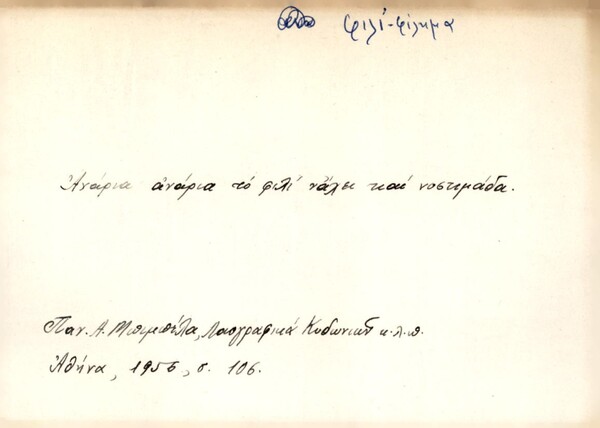 φιλί-φίλημα
Ἀνάρια ἀνάρια τό φιλί νἄχει καί νοστιμάδα.
Παν. Α. Μπιμπέλα, Λαογραφικά Κυδωνιῶν κ.λ.π.
Ἀθήνα, 1956, σ. 106.